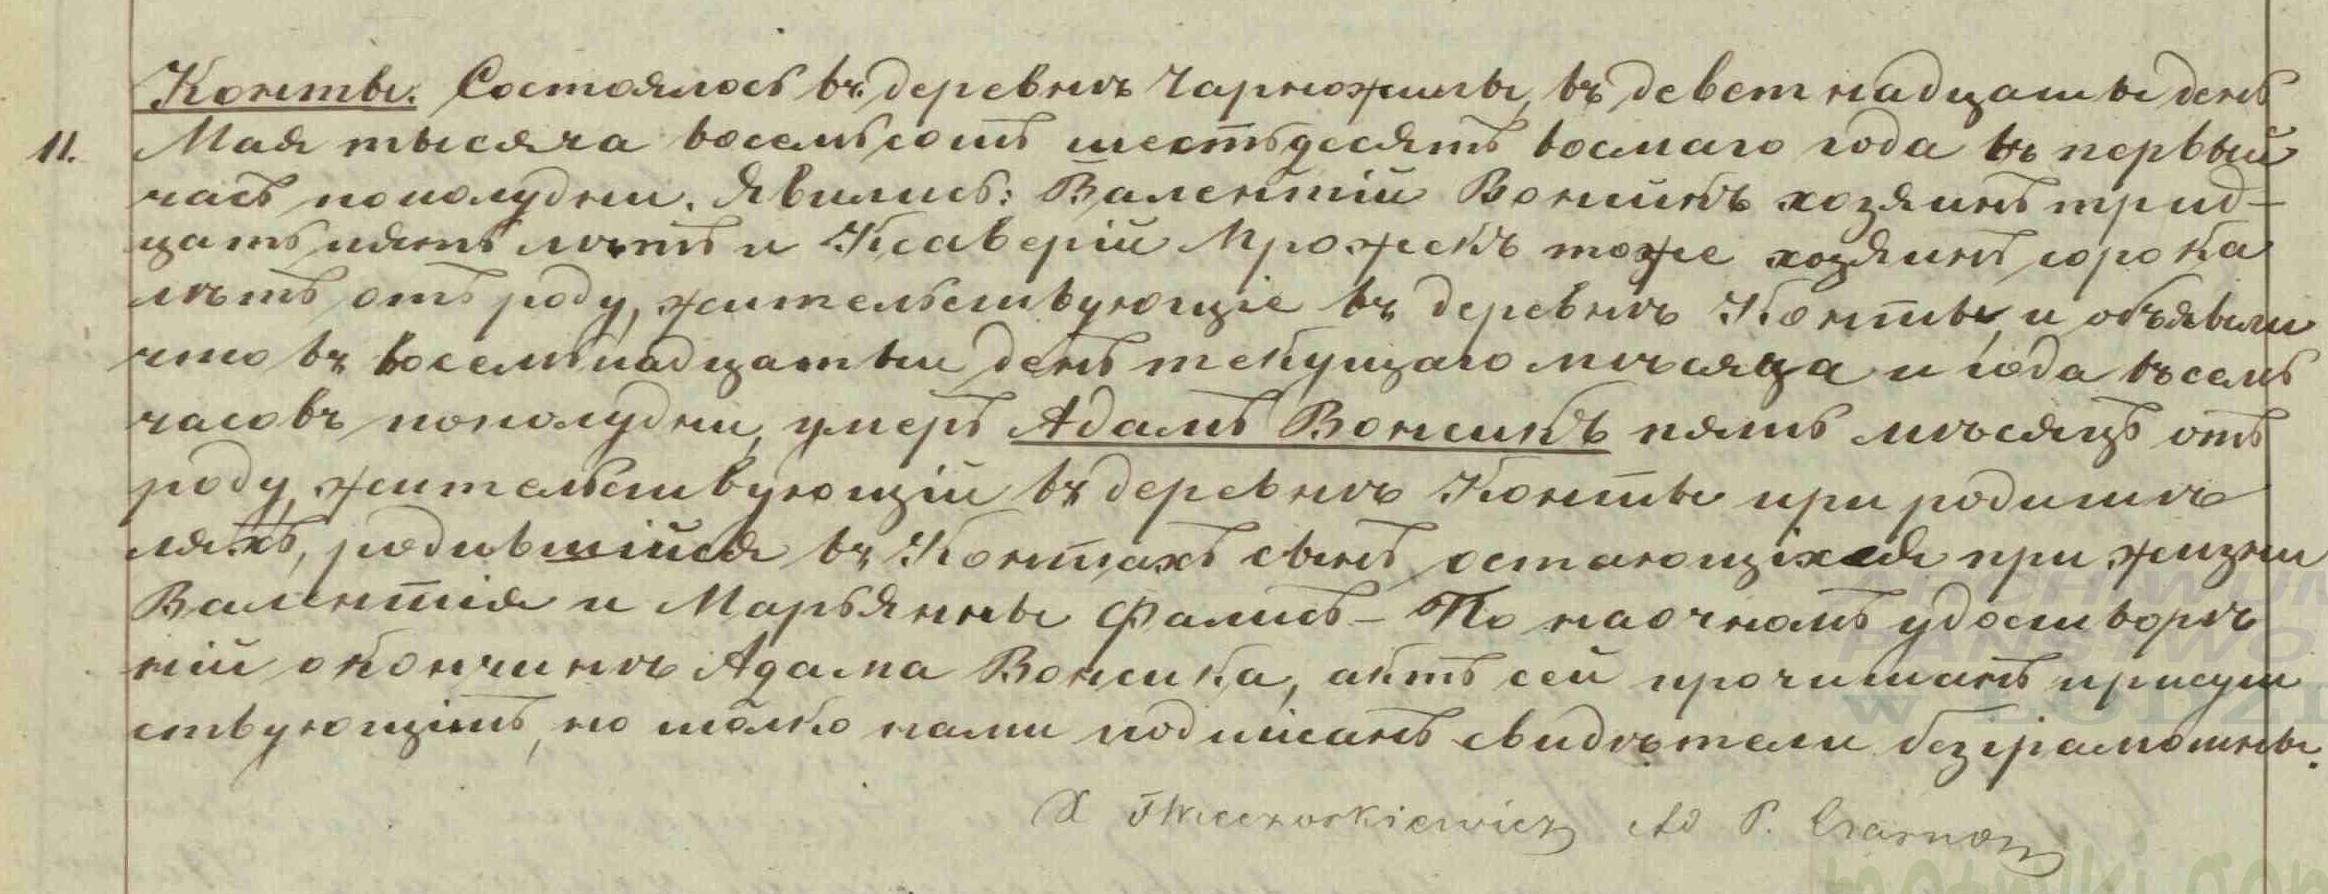 Конты. Состоялось въ деревнѣ Чарножилы, въ деветнадцаты день
11. Мая тысяча восемьсотъ шестьдесятъ восмаго года въ первый
часъ пополудни. Явились: Валентій Вонсикъ хозяинъ трид-
цать пять лѣтъ и Ксаверій Мрожекъ тоже хозяинъ сорока
лѣтъ отъ роду, жительствующіе въ деревнѣ Конты, и объявили
что въ восемьнадцатый день текущаго мѣсяца и года въ семь
часовъ пополудни, умеръ Адамъ Вонсикъ пять мѣсяцъ отъ
роду, жительствующій въ деревнѣ Конты при родитѣ
ляхъ, родившійся въ Контахъ сынъ остающіхся при жизни
Валентія и Марьянны Фалисъ - По наочномъ удостворѣ
ній окончинѣ Адама Вонсика, актъ сей прочитанъ присут
ствующімъ, но только нами подписанъ свидѣтели безграмотны.
ARCHIWUM
PAŃSTWO
W ŁODZI